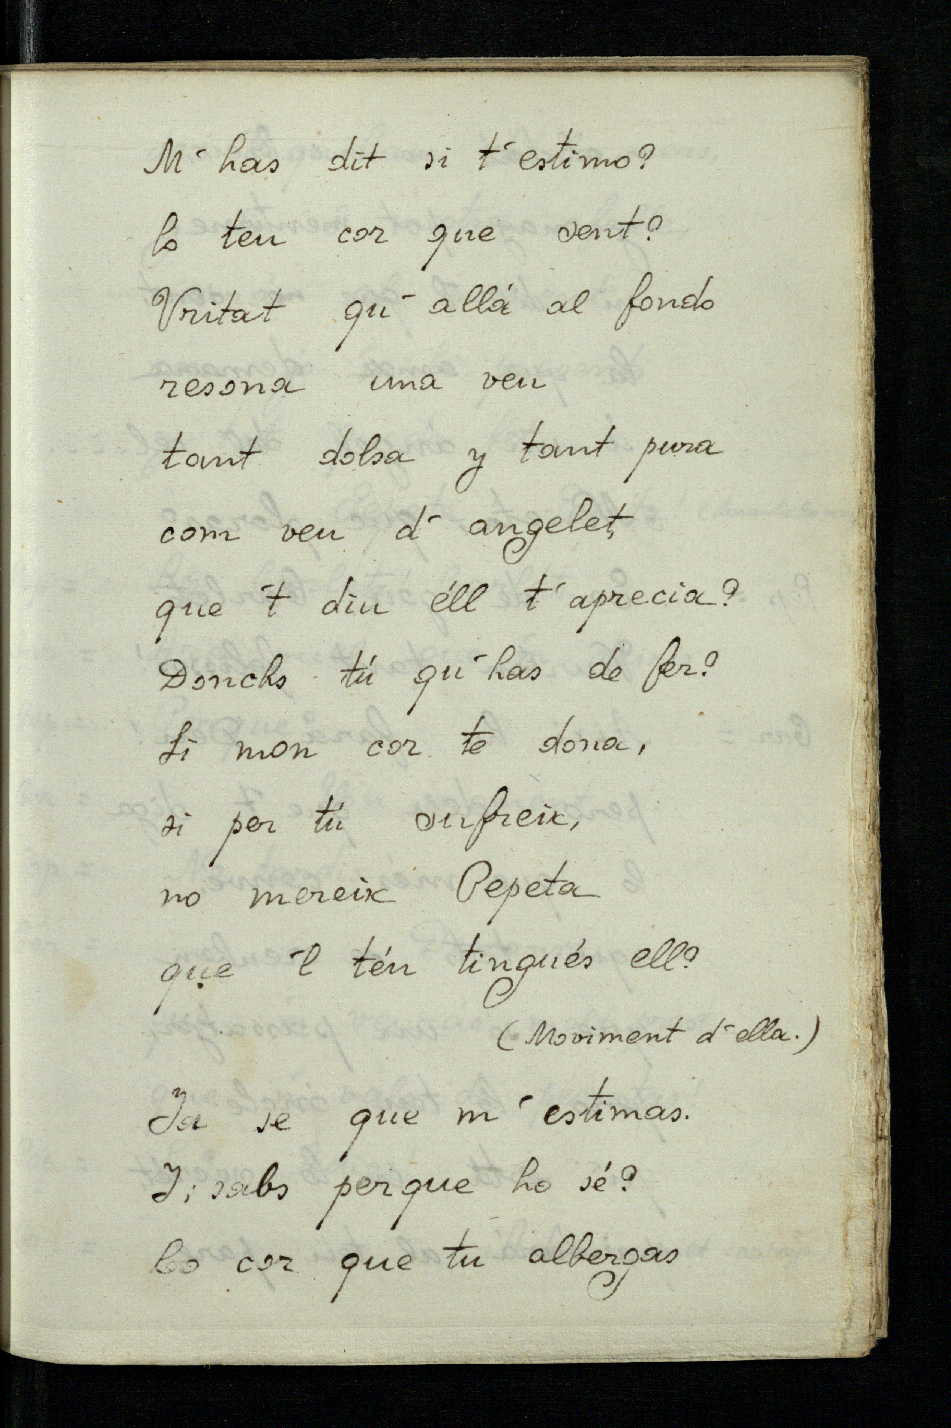 M' has dit si t' estimo?
Lo teu cor que sent?
Vritat qu' allá al fondo
resona una veu
tant dolsa y tant pura
com veu d' angelet,
que 't diu éll t' aprecia?
Donchs tú qu' has de fer?
Si mon cor te dona,
si per tú sufreix,
no mereix Pepeta
que 'l téu tingués ell?
(Moviment d' ella.)
Ja se que m' estimas.
Y, sabs perque ho sé?
Lo cor que tu albergas